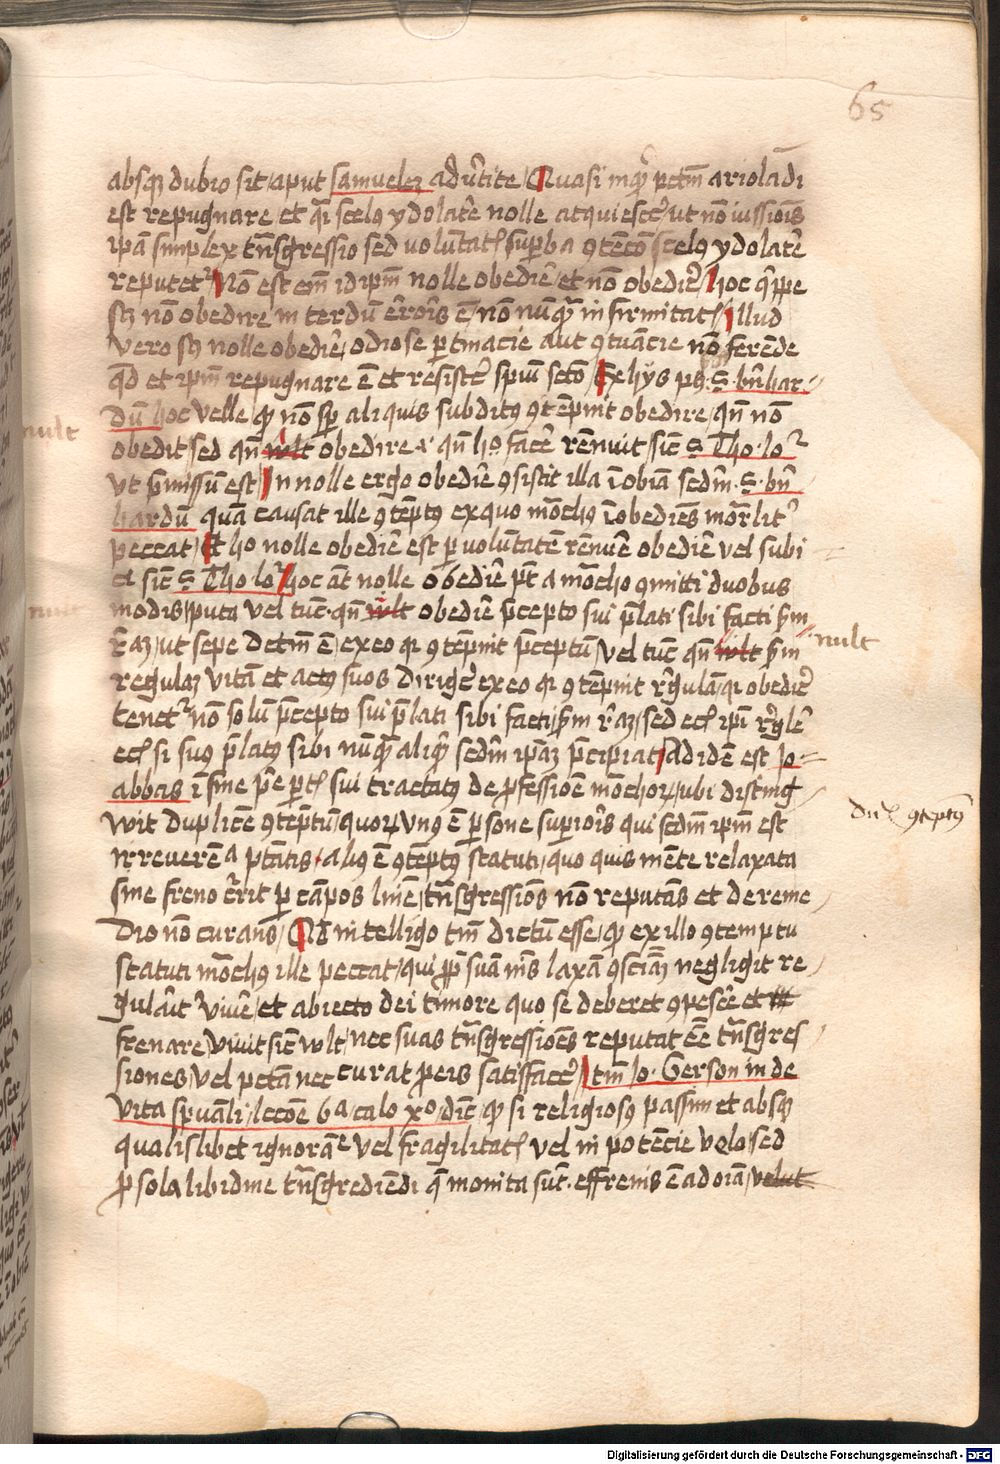 65
absqꝫ dubio sit / aput samuelē aduˀtite / Quasi inqˀ pctm̄ ariolādi
est repugnare / et qˀi scelꝰ ydolatˀe nolle acquiescˀe ut nō iussiōis
ipā simplex tn̄sgressio sed volūtatꝭ supˀba ꝯtēto scelꝰ ydolatˀe
reputetˀ Nō est em̄ id ipm̄ nolle obediˀe / et nō obediˀe / Hoc qˀppe
scꝫ nō obedire interdū erroris ē / nō nūqˀ infirmitatꝭ / Illud
vero scꝫ nolle obediˀe / odiose ꝑtinacie aut ꝯtuācie nō ferēde
qd̄ et ipm̄ repugnare ē et resistˀe spūi scto / Ex hijs pꝫ S. bn̄har
dū hoc velle qꝫ nō sp̄ aliquis subditꝰ ꝯtēpnit obedire / qn̄ nō
obedit sed qn̄ wlt obedire & qn̄ ho facˀe rēnuit / sic̄ S Tho. loˀ
vt p̄missū est / In nolle ergo obediˀe ꝯsistit illa īobīa sedm̄. S. bn̄
hardū quā causat ille ꝯtēptꝰ ex quo mōchꝰ īobediēs mor̄litˀ
peccat / Et ho nolle obediˀe est ꝑ volūtatē rēnuˀe obediˀe vel subi
ci sic̄ S Tho loˀ / hoc āt nolle obediˀe pt̄ a mōcho ꝯmitti duobus
modis / puta vel tūc qn̄ wlt obediˀe p̄cepto sui p̄lati sibi facti p̄m
rˀaꝫ / ut sepe detm̄ ē / ex eo qꝫ ꝯtēpnit p̄ceptū / vel tūc qn̄ wlt p̄m
regulaꝫ vitā et actꝰ suos dirigˀe ex eo qꝫ ꝯtēpnit rˀgulā / qˀ obediˀe
tenetˀ nō solū p̄cepto sui p̄lati sibi facti / p̄m rˀaꝫ / sed ecꝭ ipˀi rˀgle
ecꝭ si suꝰ p̄latꝰ sibi nūqˀ aliqˀ sedm̄ ipāꝫ p̄cipiat / Ad idē est Jo
abbas ī fine pˀe ꝑtꝭ sui tractatꝰ de ꝓfessiōe mōchoꝝ / ubi disting
wit duplicē ꝯtēptū / quoꝝ vnꝰ ē ꝑsone superioris qui sedm̄ ipm̄ est
irreuerēa ptātis / aliꝰ ē ꝯtēptꝰ statuti / quo quis mēte relaxata
sine freno cˀrit ꝑ cāpos licˀe / tn̄sgressiōes nō reputās et de reme
dio nō curans / Qd̄ intelligo tm̄ dictū esse / qꝫ ex illo ꝯtemptu
statuti mōchꝰ ille peccat / qui ꝓpˀ suā nˀis laxā ꝯsciāꝫ negligit re
gularˀit viuˀe / et abiecto dei timore quo se deberet ꝯpescˀe et
frenare / viuit sic̄ wlt / nec suas tn̄sgressiōes reputat eē tn̄sgres
siones / vel pctā nec curat ꝓ eis satisfacˀe / Itm̄ Jo. Gerson in de
vita spūali / lccōe 6a / calo xo / dic̄ qꝫ si religiosꝰ passim et absqꝫ
qualislibet ignorāe vel fragilitatꝭ vel inpotēcie velo sed
ꝓ sola libidine tn̄sgrediēdi q̄ monita sūt. effrenis ē ad oīa / velut
nult
nult
nult
Dulꝭ ꝯtēptꝰ
Digitalisierung gefördert durch die Deutsche Forschungsgemeinschaft - DFG